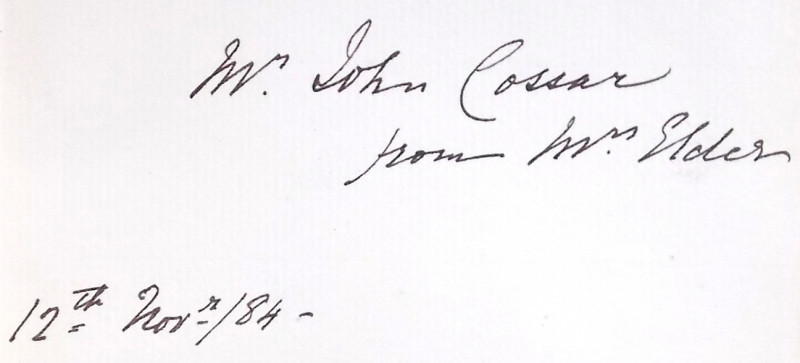 Mr. John Cossar
from Mrs. Elder
12th Novr/84-